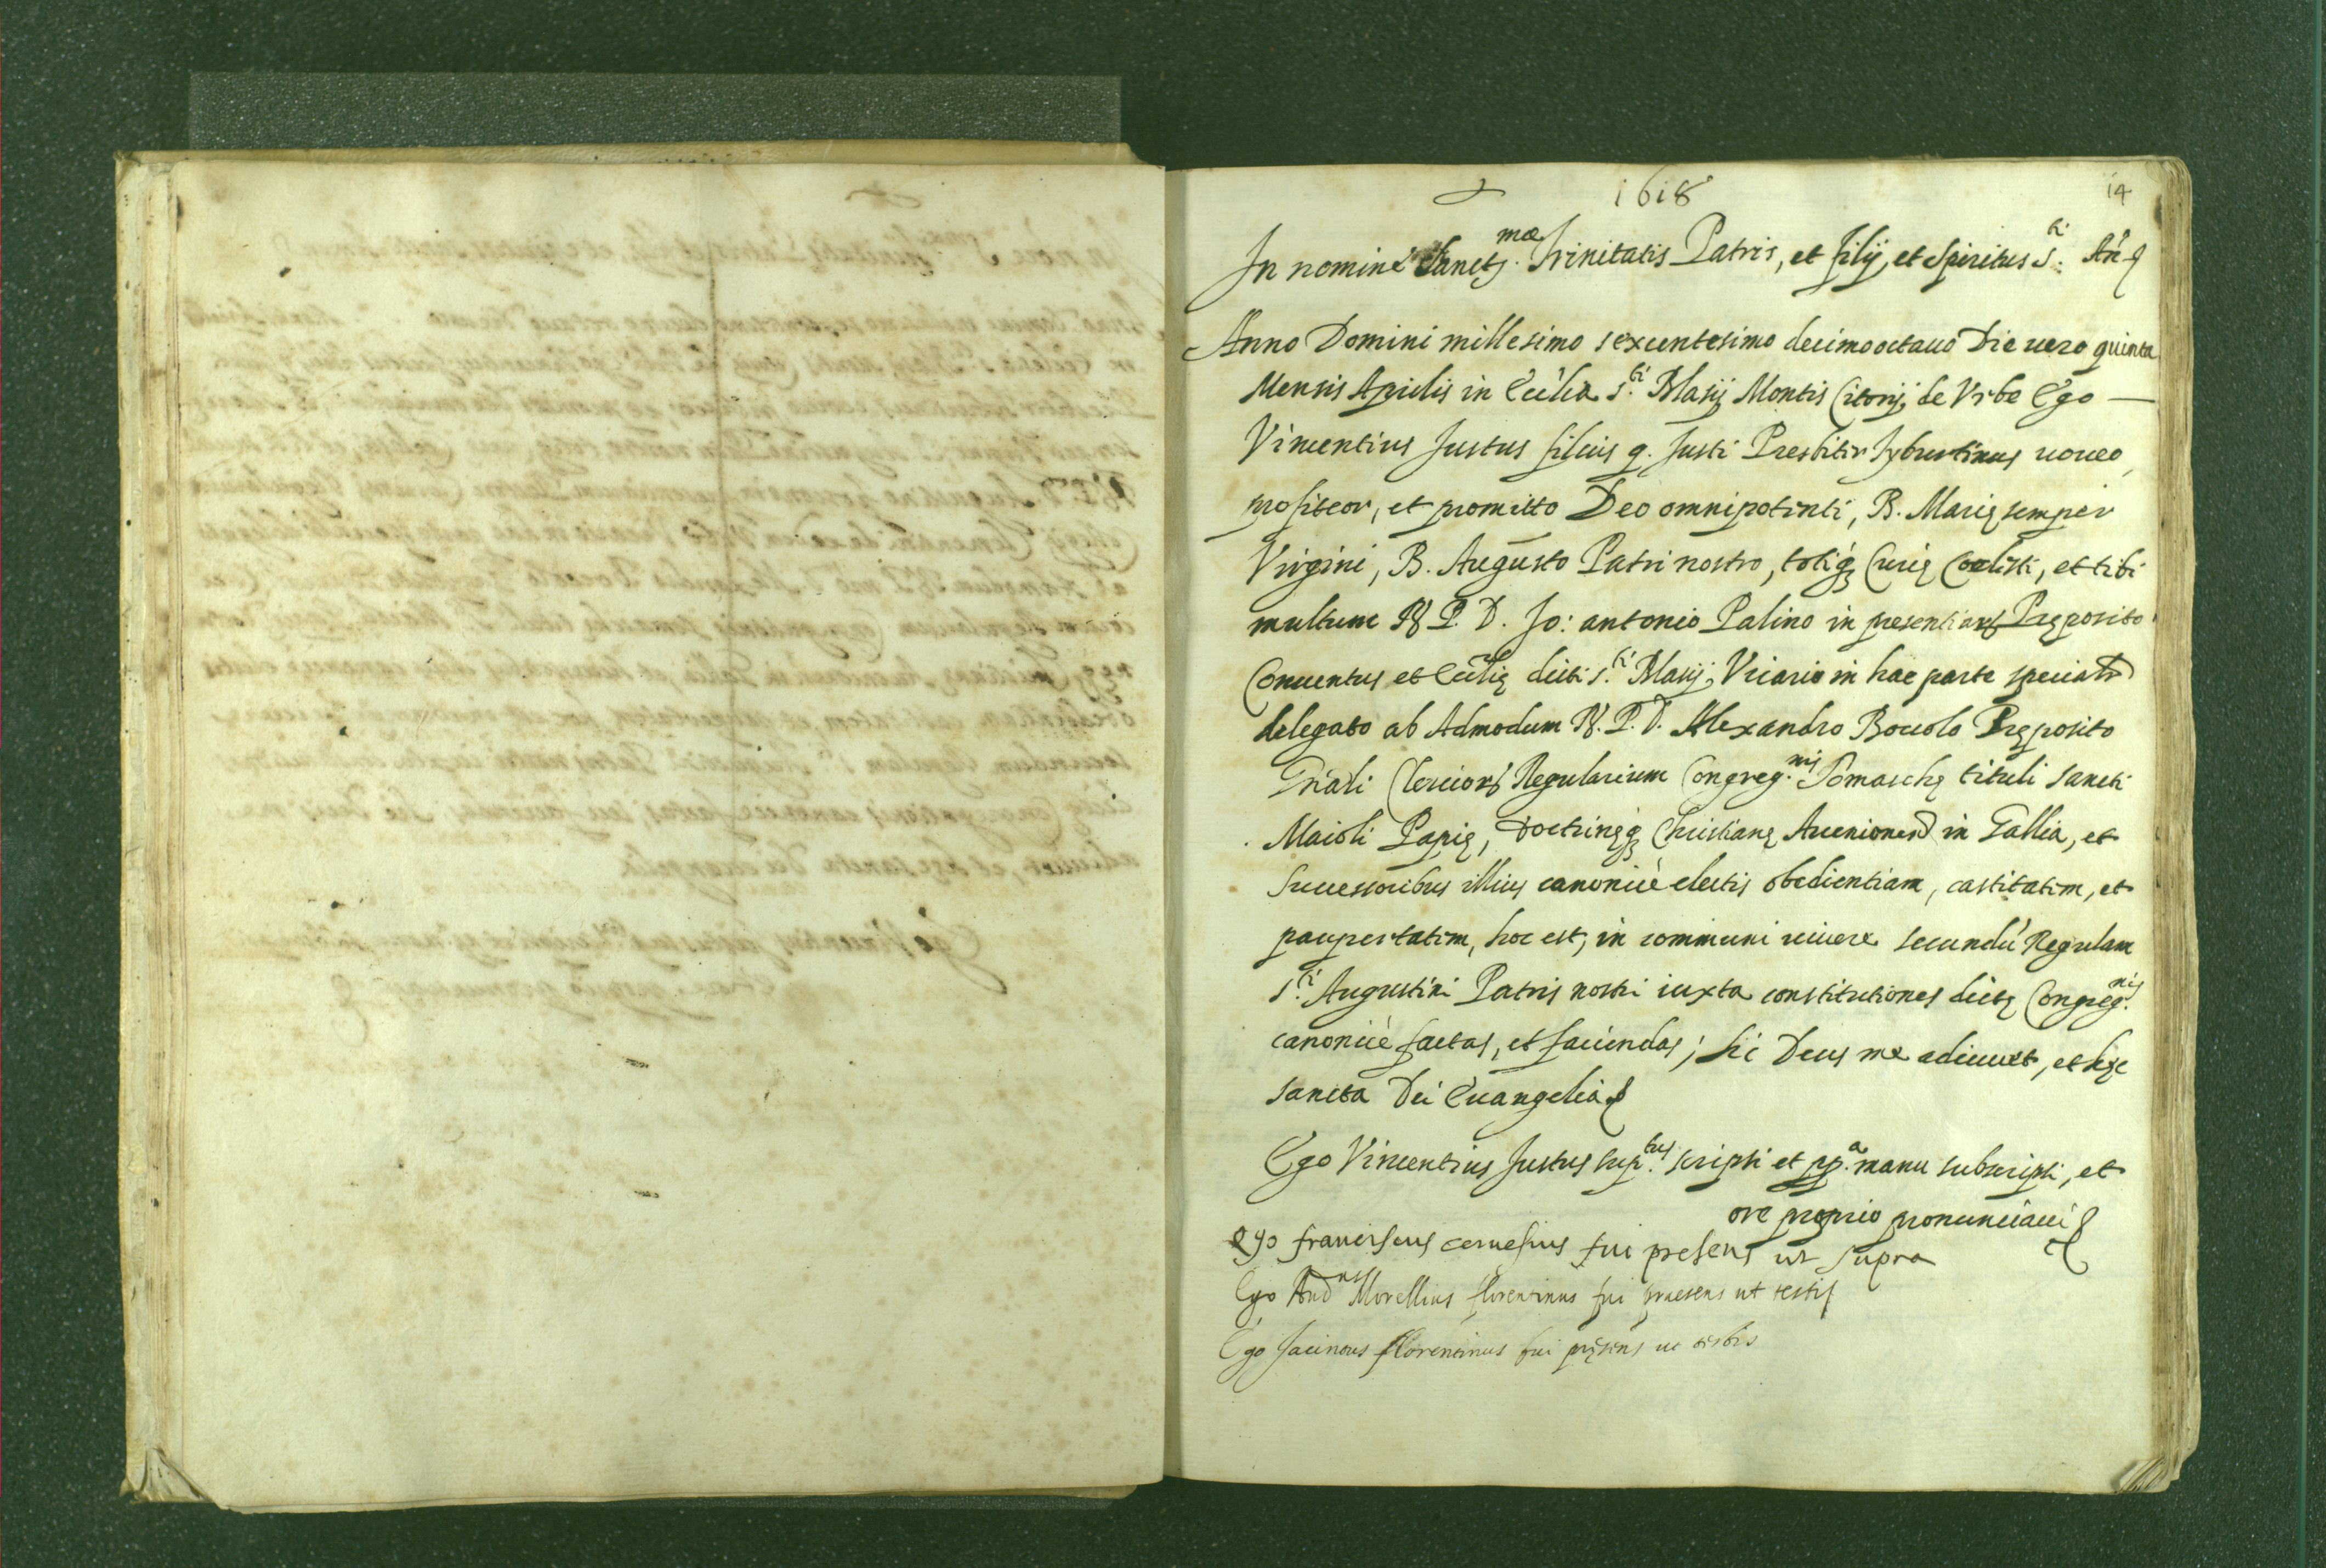 1618
14
In nomine Sanctę.mæ Trinitatis Patris, et filij, et Spiritus S.ti Am̃
Anno Domini millesimo sexcentesimo decimooctauo Die uero quinta
Mensis Aprilis in Eccl̃ia S.ti Blasij Montis Citorij de Vrbe Ego —
Vincentius Justus filius q. Justi Presbiter Tyburtinus uoueo,
profiteor, et promitto Deo omnipotenti, B. Marię semper
Virgini, B. Augusto Patri nostro, totiq; Curię Coelesti, et tibi
multum R. P. D. Jo: antonio Palino in presentiar Pręposito
Conuentus et Eccl̃ię dicti S.ti Blasij, Vicario in hac parte specialr
delegato ab Admodum R. P. D. Alexandro Boccolo Pręposito
Gñali Clericor Regularium Congreg.nis Somaschę tituli sancti
Maioli Papię, Doctrinęq; Christianę Auenionen in Gallia, et
Successoribus illius canonicè electis obedientiam, castitatem, et
paupertatem, hoc est, in communi uiuere secundũ Regulam
S.ti Augustini Patris nostri iuxta constitutiones dictę Congreg.nis
canonicè factas, et faciendas; sic Deus me adiuuet, et hęc
sancta Dei Euangelia
Ego Vincentius Justus sup.tus scripsi et pp.a manu subscripsi, et
ore proprio pronunciaui
ego franciscus cernesius fui presens ut supra
Ego And.us Morellius florentinus fui praesens ut testis
Ego Jacinous florentinus fui pręsens ut testis